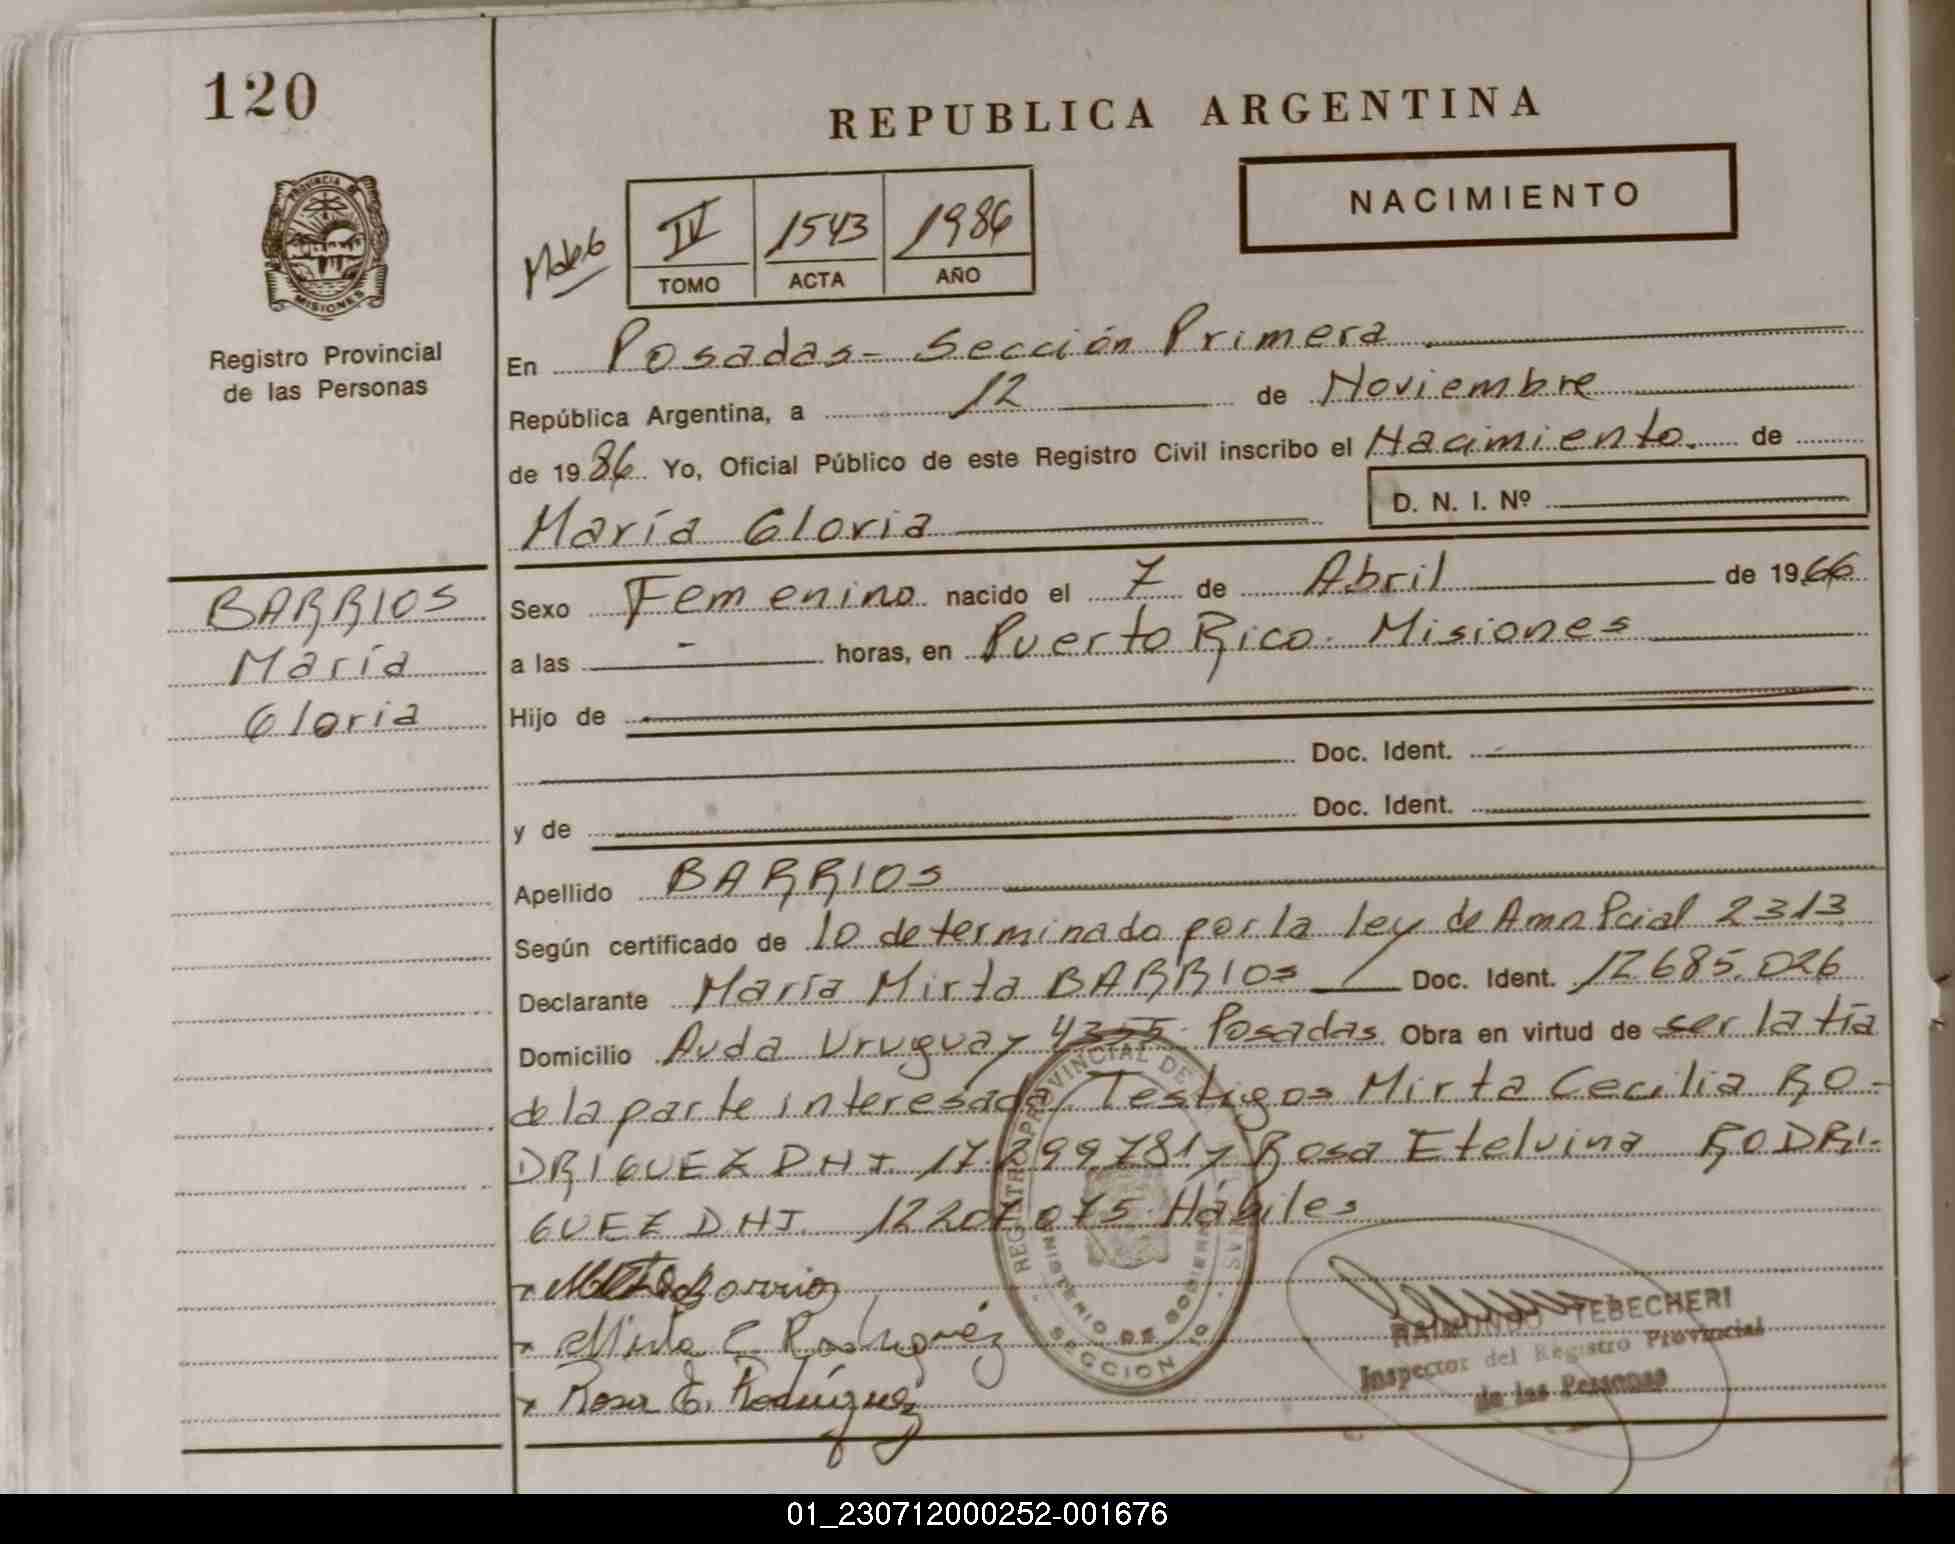 120
REPUBLICA ARGENTINA
NACIMIENTO
PROVINCIA DE
MISIONES
IV 1543 1986
TOMO ACTA AÑO
Registro Provincial
de las Personas
En Posadas - Sección Primera
República Argentina, a 12 de Noviembre
de 1986 Yo, Oficial Público de este Registro Civil inscribo el Nacimiento. de
María Gloria D. N. I. Nº
BARRIOS
María
Gloria
Sexo Femenino nacido el 7 de Abril de 1966
a las - horas, en Puerto Rico. Misiones
Hijo de
Doc. Ident.
y de Doc. Ident.
Apellido BARRIOS
Según certificado de lo determinado por la ley de Amn Pcial 2313
Declarante María Mirta BARRIOS Doc. Ident. 12685.026
Domicilio Avda Uruguay 4355 Posadas. Obra en virtud de ser la tía
de la parte interesada Testigos Mirta Cecilia RO-
DRIGUEZ DNI 17.299.781 y Rosa Etelvina RODRI-
GUEZ DNI. 12207.075 Hábiles
Barrios
Mirta C. Rodriguez
Rosa E. Rodríguez
REGISTRO PROVINCIAL DE LAS
MINISTERIO DE GOBIERNO
SECCION 1º
RAIMUNDO TEBECHERI
Inspector del Registro Provincial
de las Personas
01_230712000252-001676